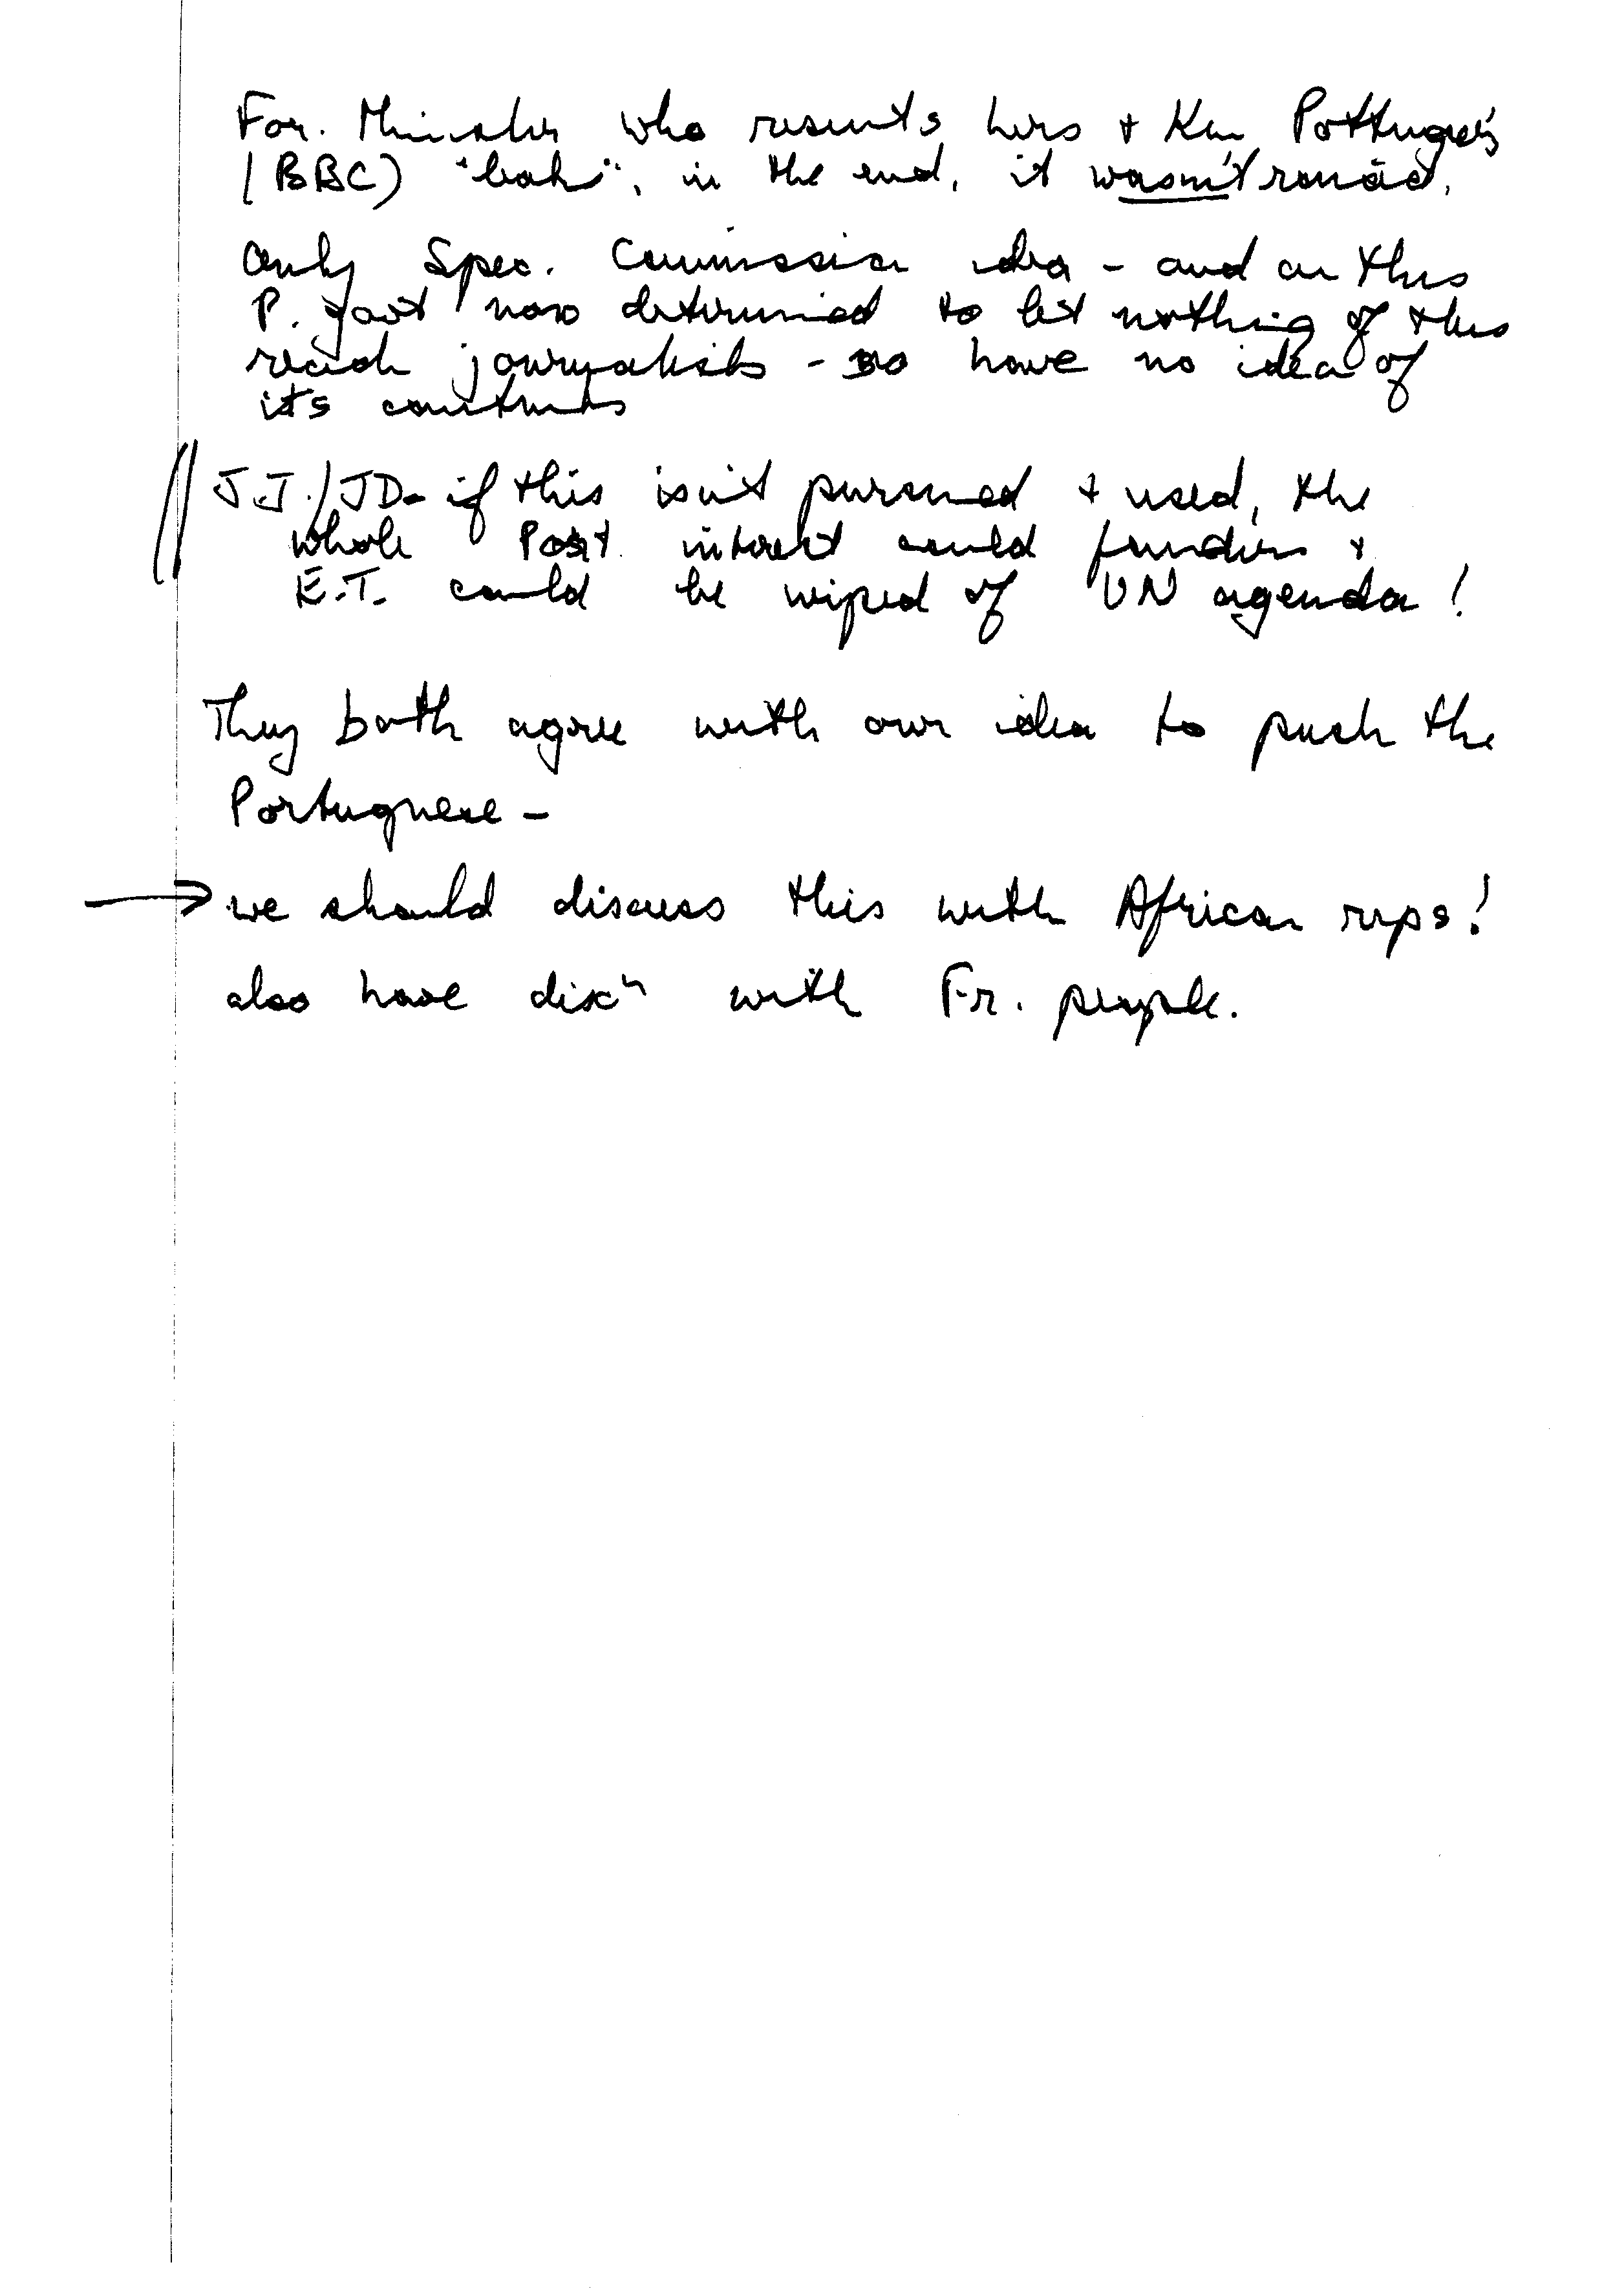 For. Minister who resents hers + Ken Pottinger's
(BBC) "leaks", in the end, it wasn't raised.
Only Spec. Commission idea - and on this
P. govt now determined to let nothing of this
reach journalists - so have no idea of
its contents
J.J./JD - if this isn't pursued + used, the
whole Port. interest could founder +
E.T. could be wiped of UN agenda!
They both agree with our idea to push the
Portuguese -
→ we should discuss this with African reps!
also have discn with Fr. people.